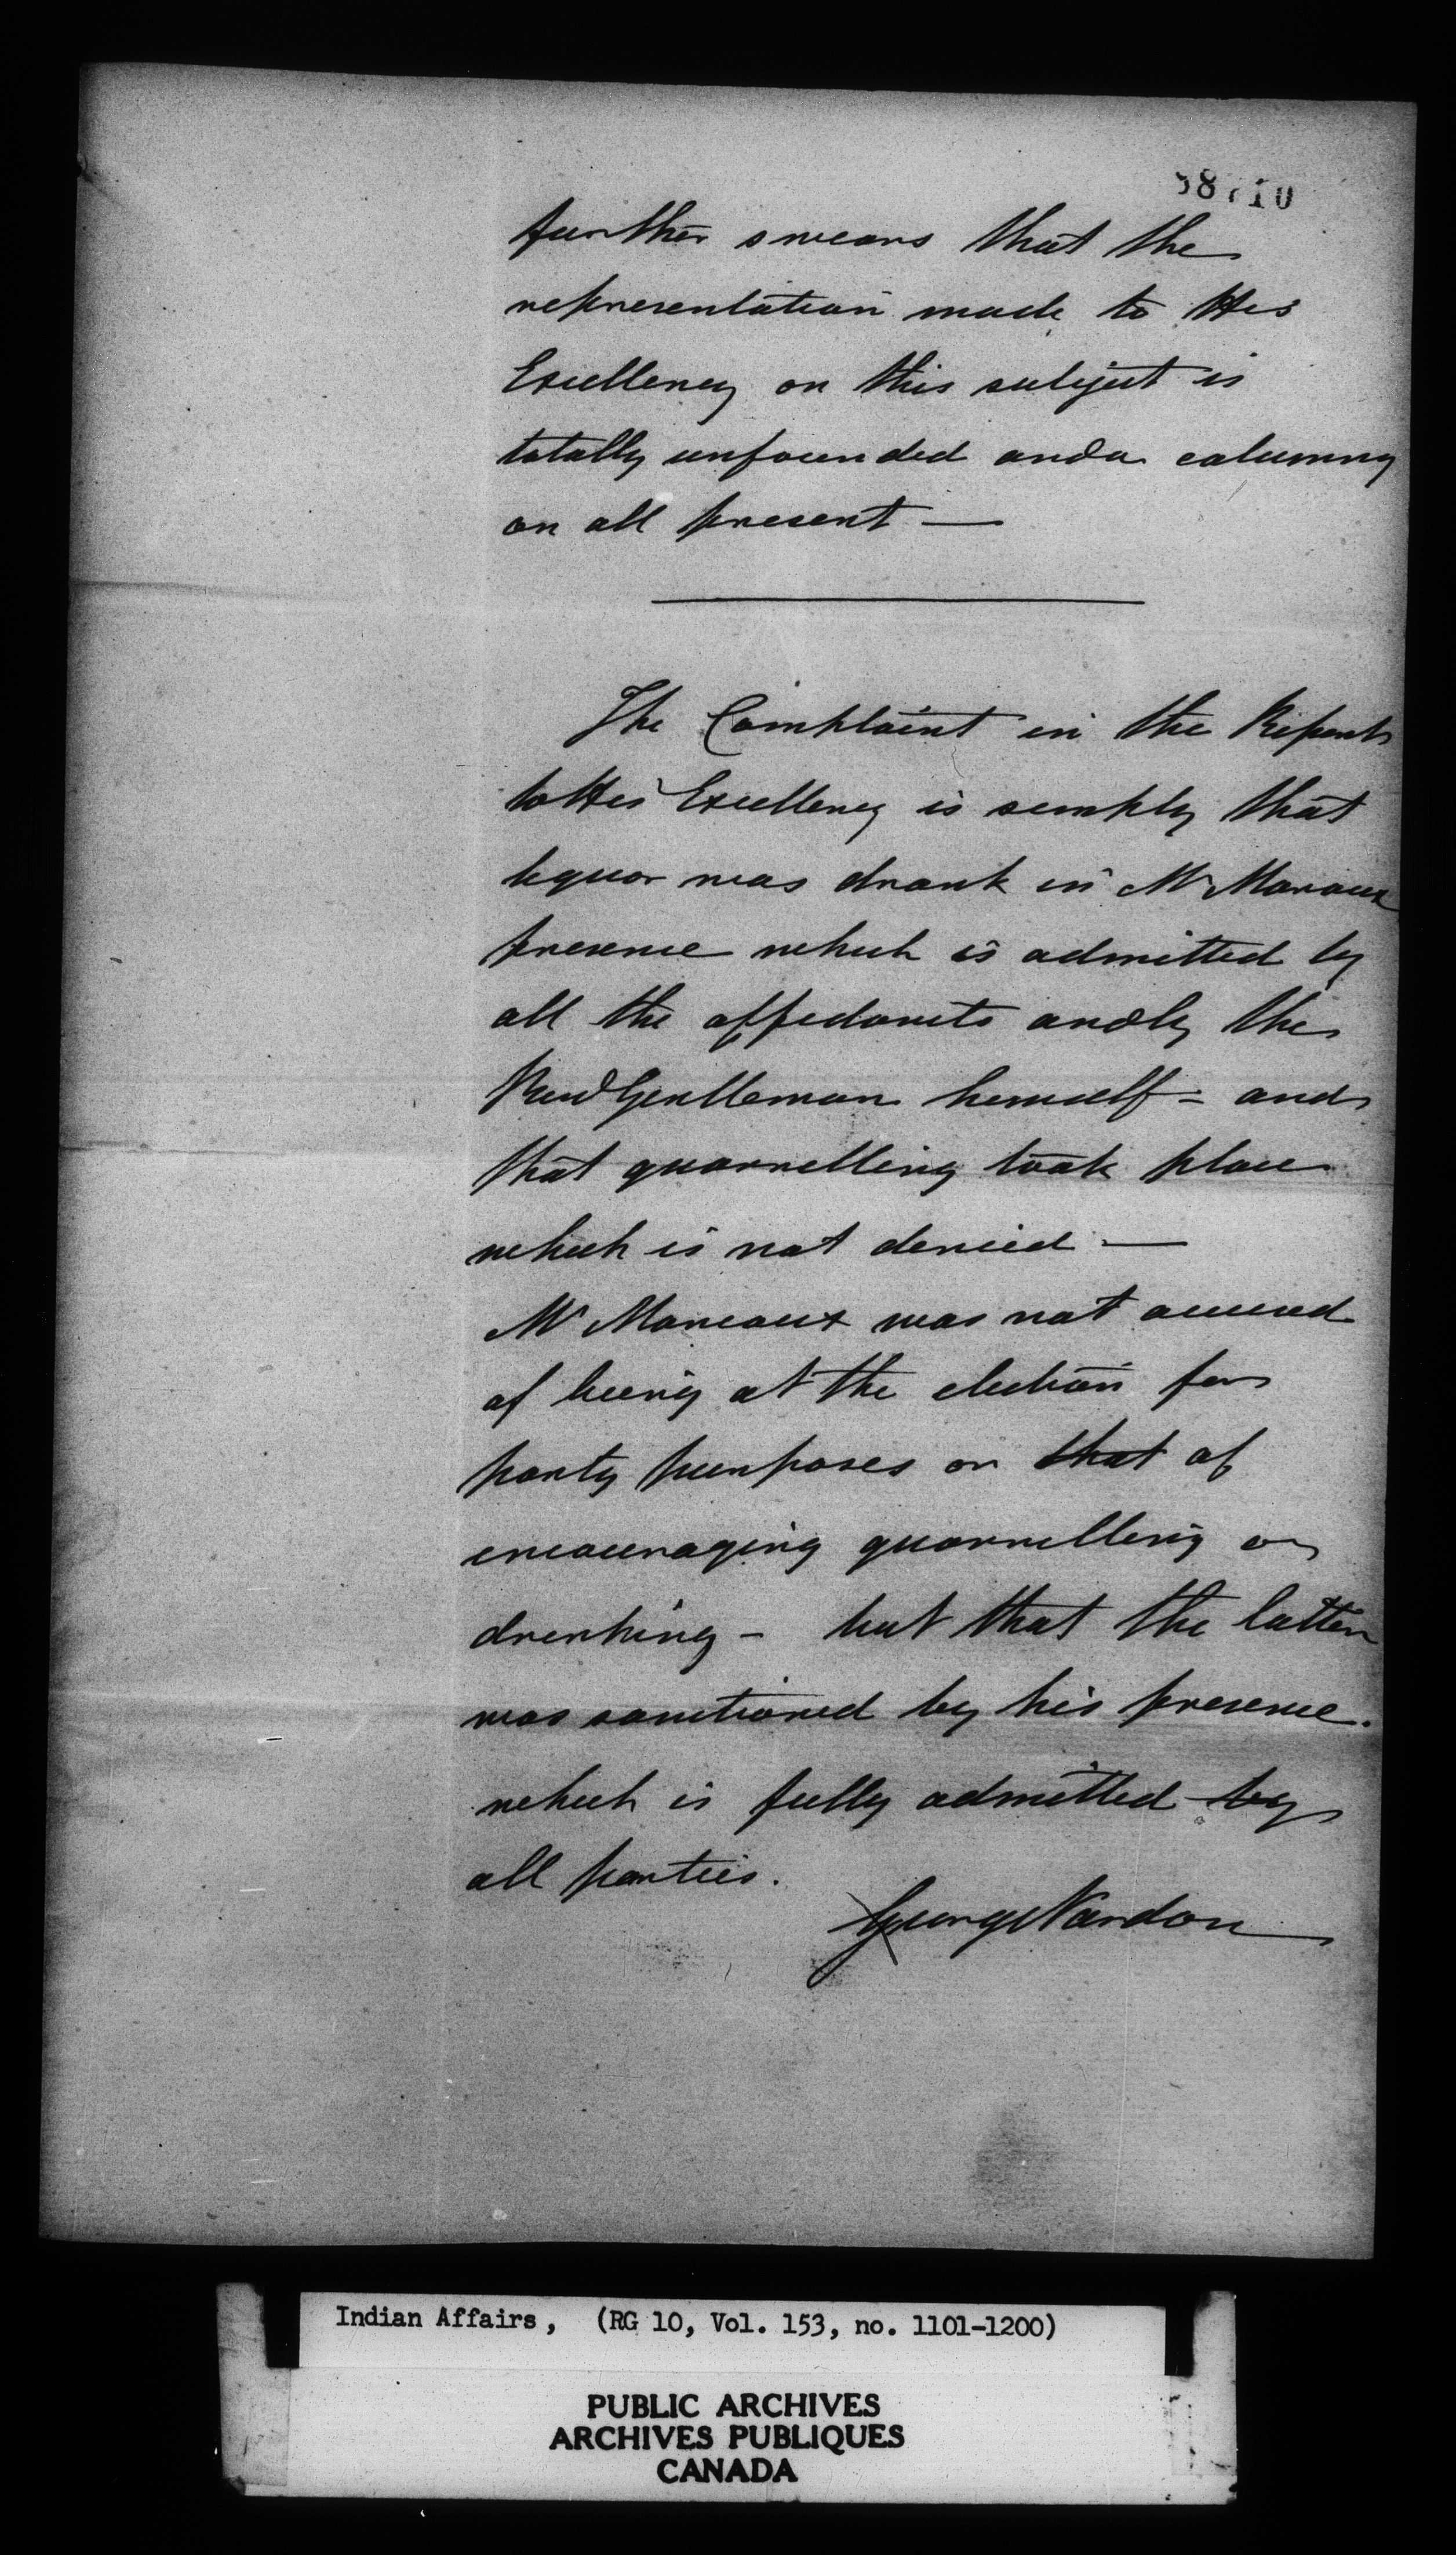 further swears that the
representation made to His
Excellency on this subject is
totally unfounded and a calumny
on all present —
The Complaint in the Report
to His Excellency is simply that
liquor was drank in Mr
presence which is admitted by
all the affidavits and by the
Revd Gentleman himself = and
that quarrelling took place
which is not denied —
Mr Marcoux was not accused
of being at the election for
party purposes or that of
encouraging quarrelling or
drinking – but that the latter
was sanctioned by his presence.
which is fully admitted by
all parties.
George Vardon
Indian Affairs, (RG 10, Vol. 153, no. 1101-1200)
PUBLIC ARCHIVES
ARCHIVES PUBLIQUES
CANADA